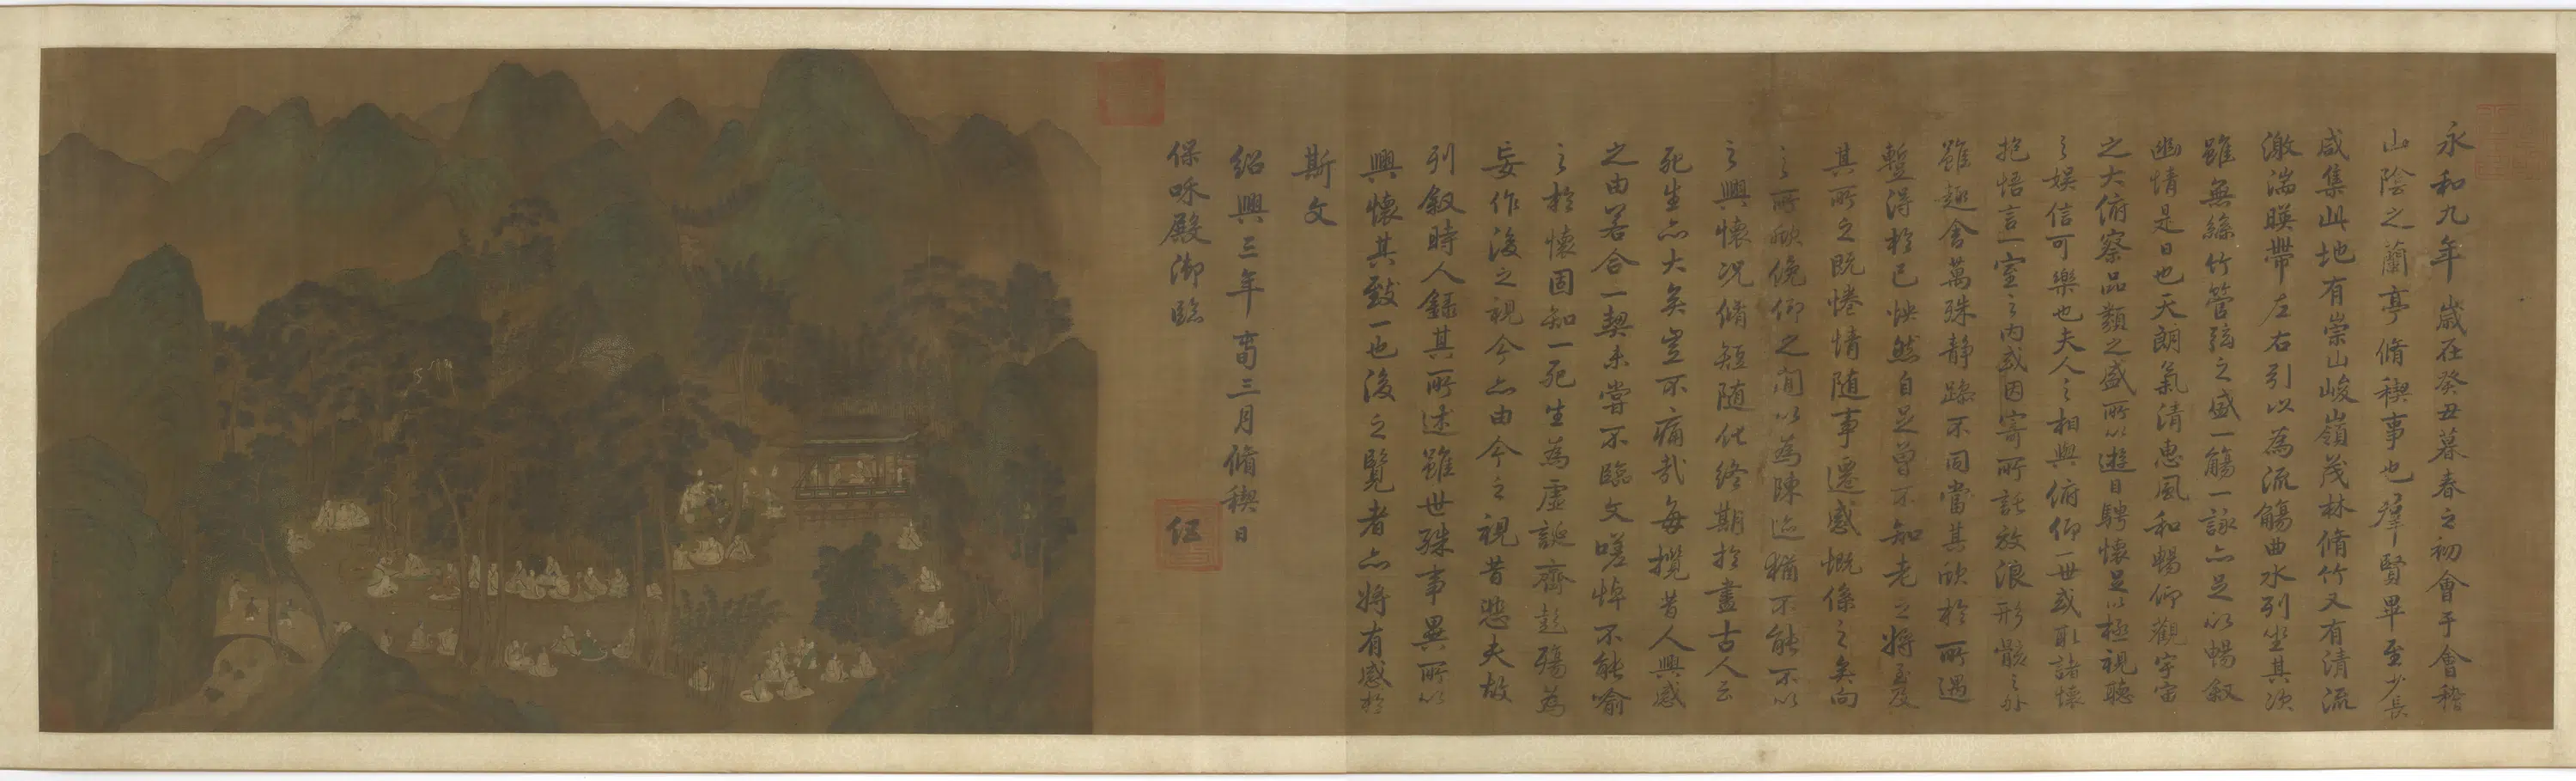 永和九年歲在癸丑暮春之初會于會稽
山陰之蘭亭脩稧事也羣賢畢至少長
咸集此地有崇山峻嶺茂林脩竹又有清流
激湍暎帶左右引以為流觴曲水列坐其次
雖無絲竹管弦之盛一觴一詠亦足以暢敘
幽情是日也天朗氣清惠風和暢仰觀宇宙
之大俯察品類之盛所以遊目騁懷足以極視聽
之娛信可樂也夫人之相與俯仰一世或取諸懷
抱悟言一室之內或因寄所託放浪形骸之外
雖趣舍萬殊靜躁不同當其欣於所遇
蹔得於己怏然自足曾不知老之將至及
其所之既惓情隨事遷感慨係之矣向
之所欣俛仰之間以為陳迹猶不能不以
之興懷況脩短隨化終期於盡古人云
死生亦大矣豈不痛哉每攬昔人興感
之由若合一契未嘗不臨文嗟悼不能喻
之於懷固知一死生為虛誕齊彭殤為
妄作後之視今亦由今之視昔悲夫故
列敘時人錄其所述雖世殊事異所以
興懷其致一也後之覽者亦將有感於
斯文
紹興三年 三月脩稧日
保咊殿御臨